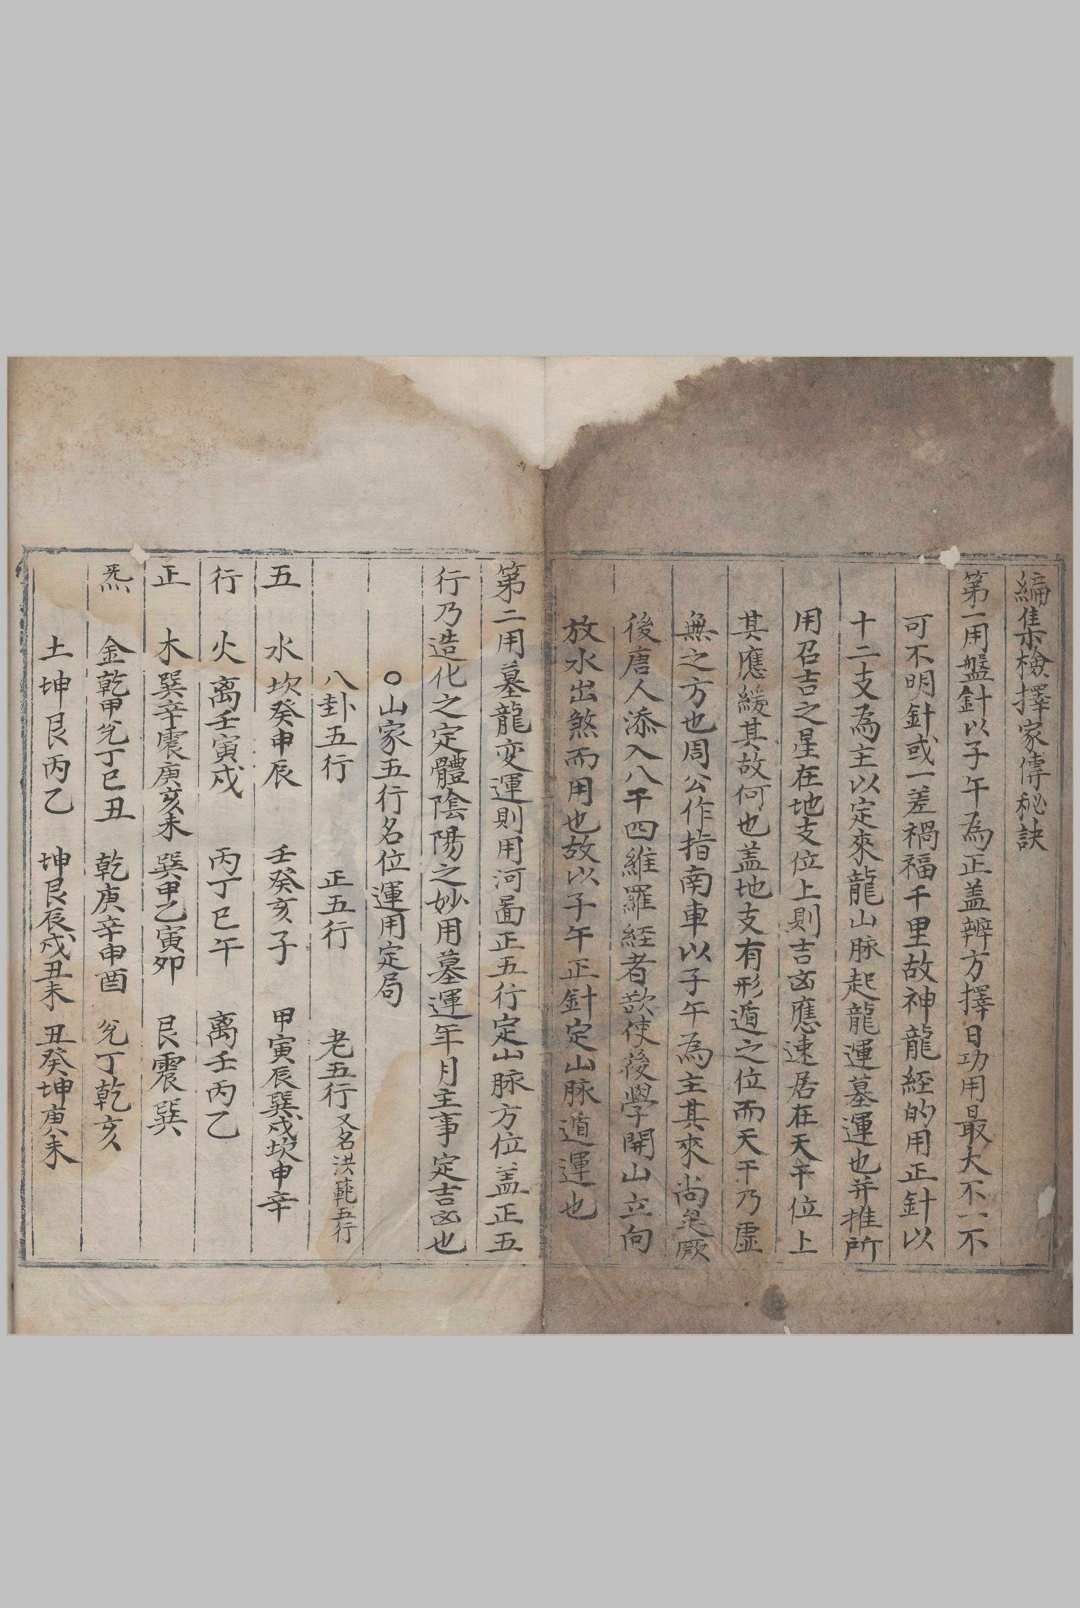 編集檢擇家傳秘訣
第一用盤針以子午為正盖辨方擇日功用最大不一不
可不明針或一差禍福千里故神龍經的用正針以
十二支為主以定來龍山脉起龍運墓運也并推所
用召吉之星在地支位上則吉凶應速居在天干位上
其應緩其故何也盖地支有形遁之位而天干乃虛
無之方也周公作指南車以子午為主其來尚矣厥
後唐人添入八干四維羅経者欲使後學開山立向
放水出煞而用也故以子午正針定山脉遁運也
第二用墓龍变運則用河圖正五行定山脉方位盖正五
行乃造化之定體陰陽之妙用墓運年月主事定吉凶也
○山家五行名位運用定局
八卦五行 正五行 老五行又名洪範五行
五 水 坎癸申辰 壬癸亥子 甲寅辰巽戌坎申辛
行 火 离壬寅戌 丙丁巳午 离壬丙乙
正 木 巽辛震庚亥未 巽甲乙寅卯 艮震巽
炁 金 乾甲兊丁巳丑 乾庚辛申酉 兊丁乾亥
土 坤艮丙乙 坤艮辰戌丑未 丑癸坤庚未